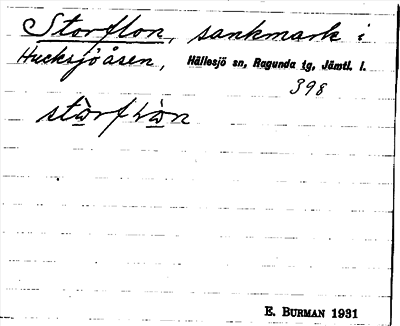 Storflon, sankmark i
Hucksjöåsen, Hällesjö sn, Ragunda tg, Jämtl. l.
398
E. BURMAN 1931